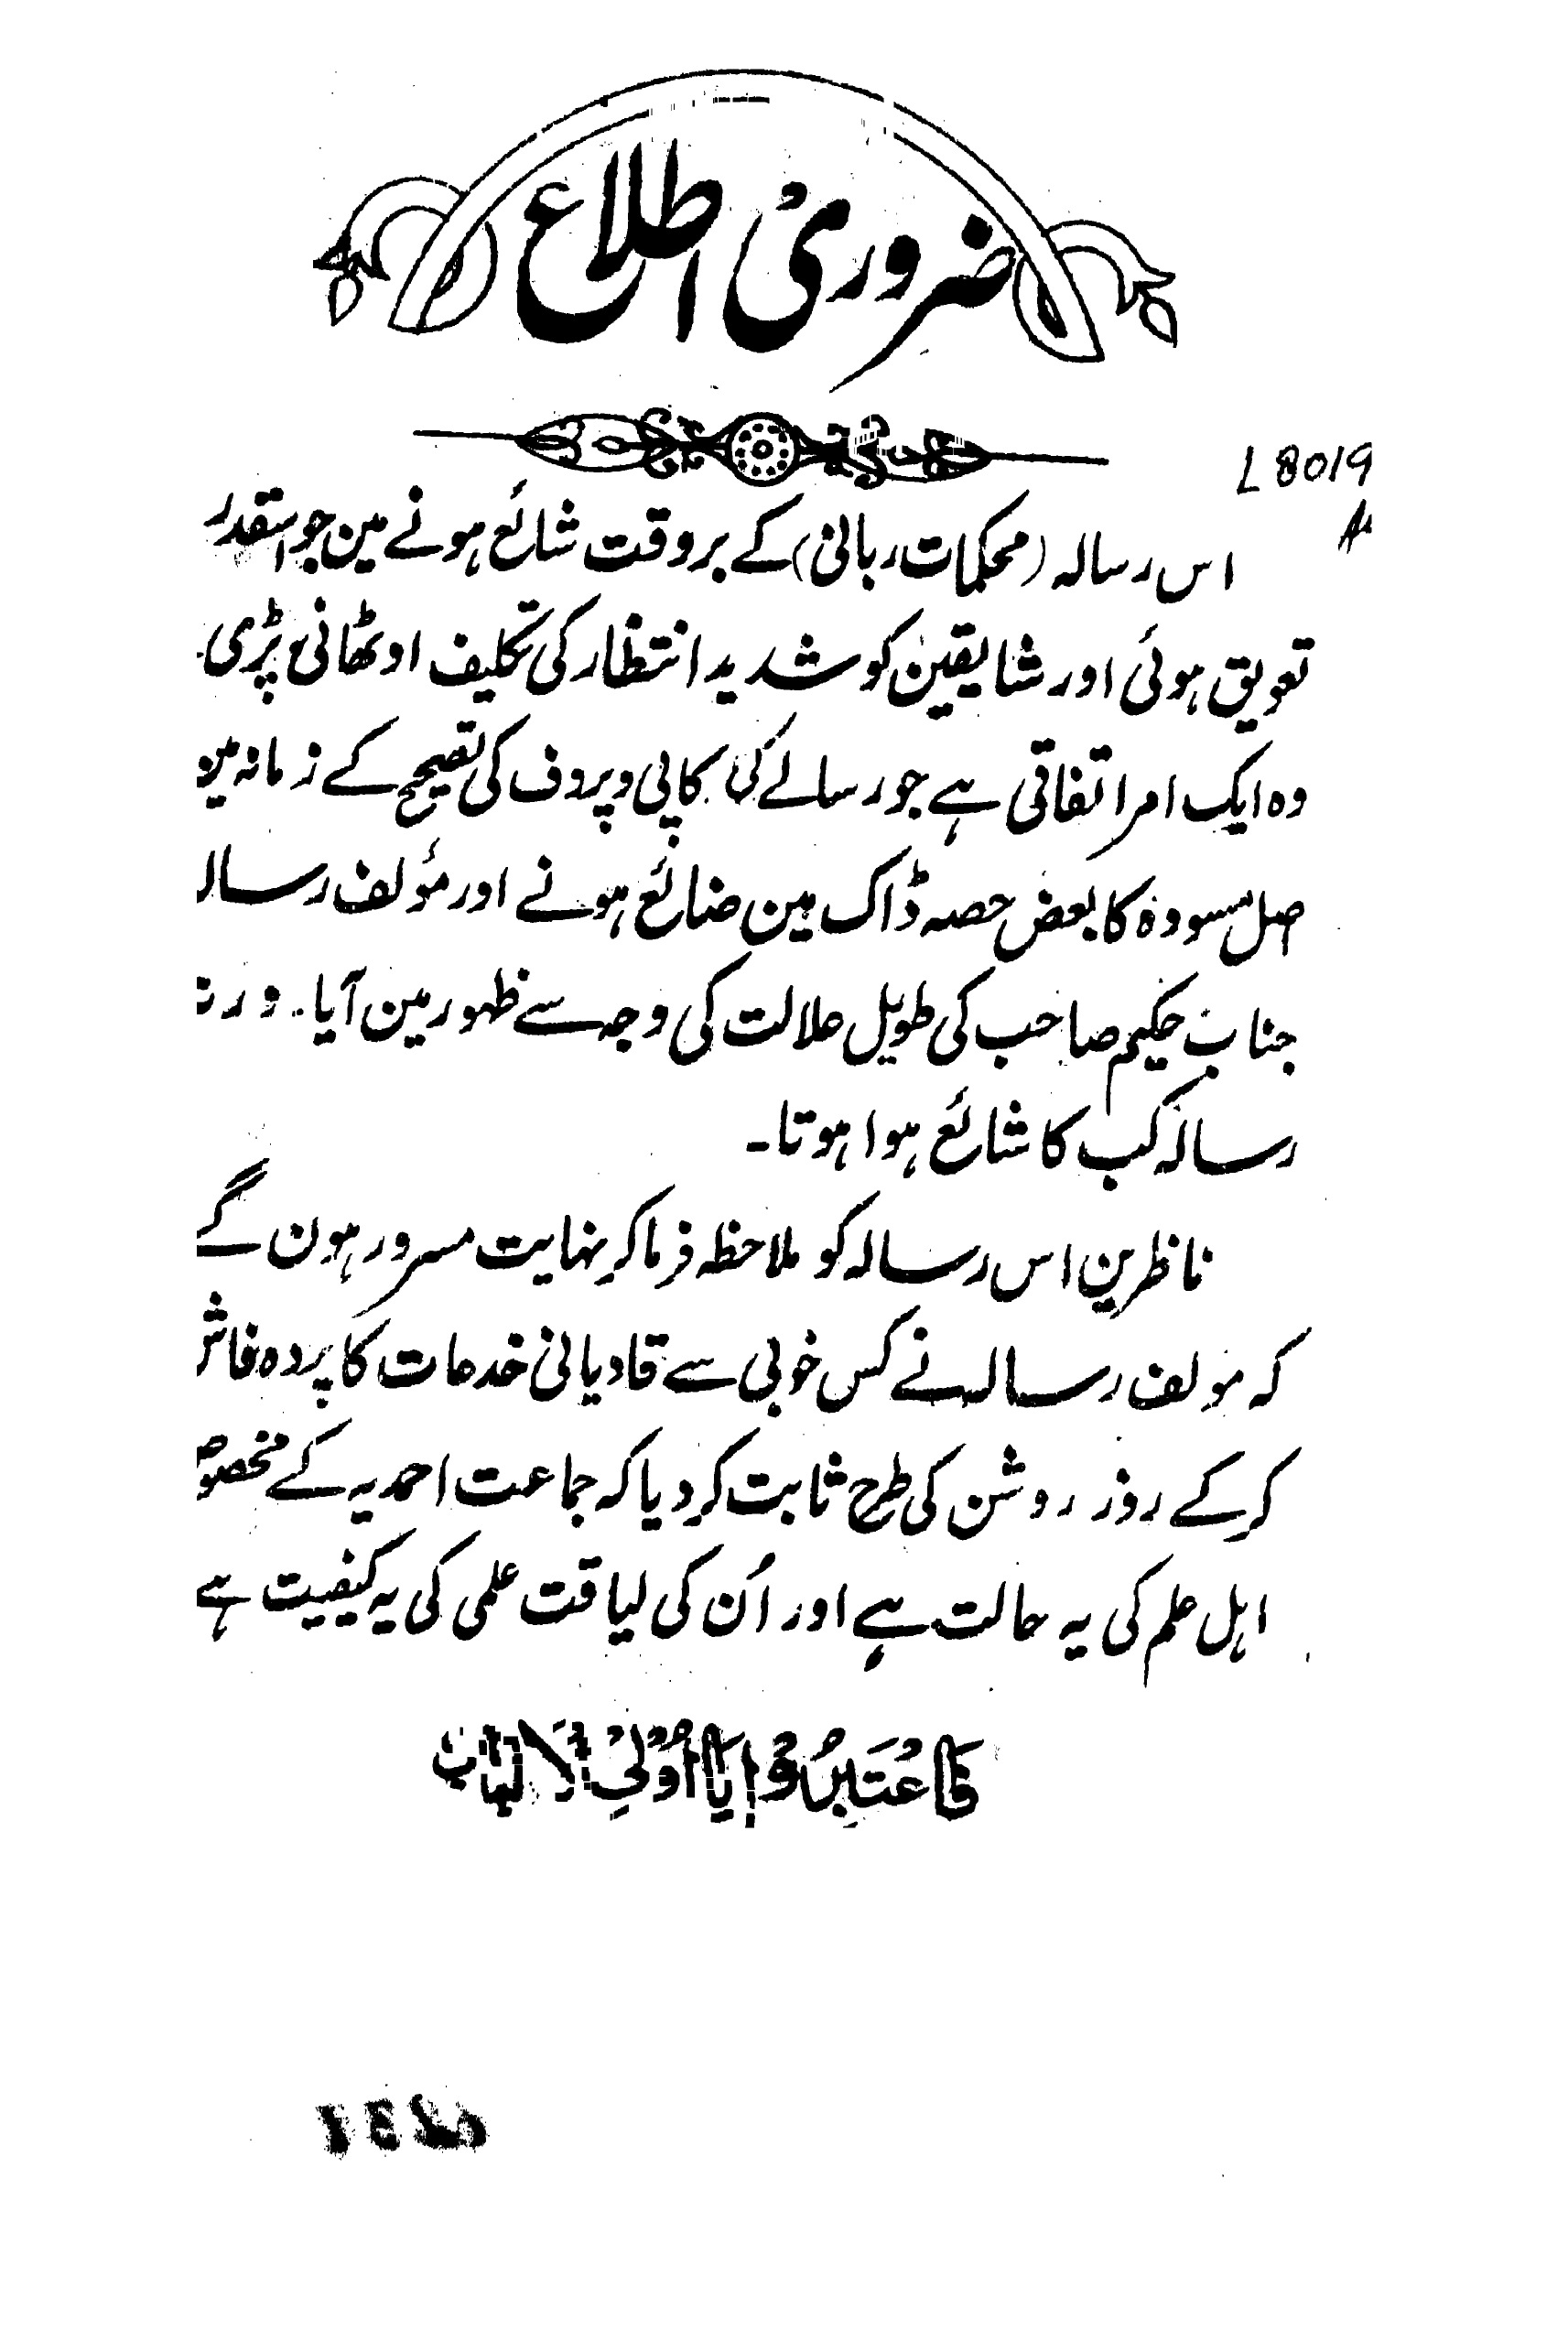 ضروری اطلاع
L 8019
اس رسالہ (محکمات ربانی) کے بروقت شائع ہونے مین جو اسقدر
تعویق ہوئی اور شایقین کو شدید انتظار کی تکلیف اوٹھانی پڑی۔
وہ ایک امر اتفاقی ہے جو رسالے کی کاپی و پروف کی تصحیح کے زمانہ مین
اصل مسودہ کا بعض حصہ ڈاک مین ضائع ہونے اور مؤلف رسالہ
جناب حکیم صاحب کی طویل علالت کی وجہ سے ظہور مین آیا۔ ورنہ
رسالہ کب کا شائع ہوا ہوتا۔
ناظرین اس رسالہ کو ملاحظہ فرما کر نہایت مسرور ہون گے
کہ مولف رسالہ نے کس خوبی سے قادیانی خدمات کا پردہ فاش
کر کے روز روشن کی طرح ثابت کر دیا کہ جماعت احمدیہ کے مخصوص
اہل علم کی یہ حالت ہے اور اُن کی لیاقت علمی کی یہ کیفیت ہے
فَاعْتَبِرُوْا یَا اُوْلِی الْاَلْبَاب